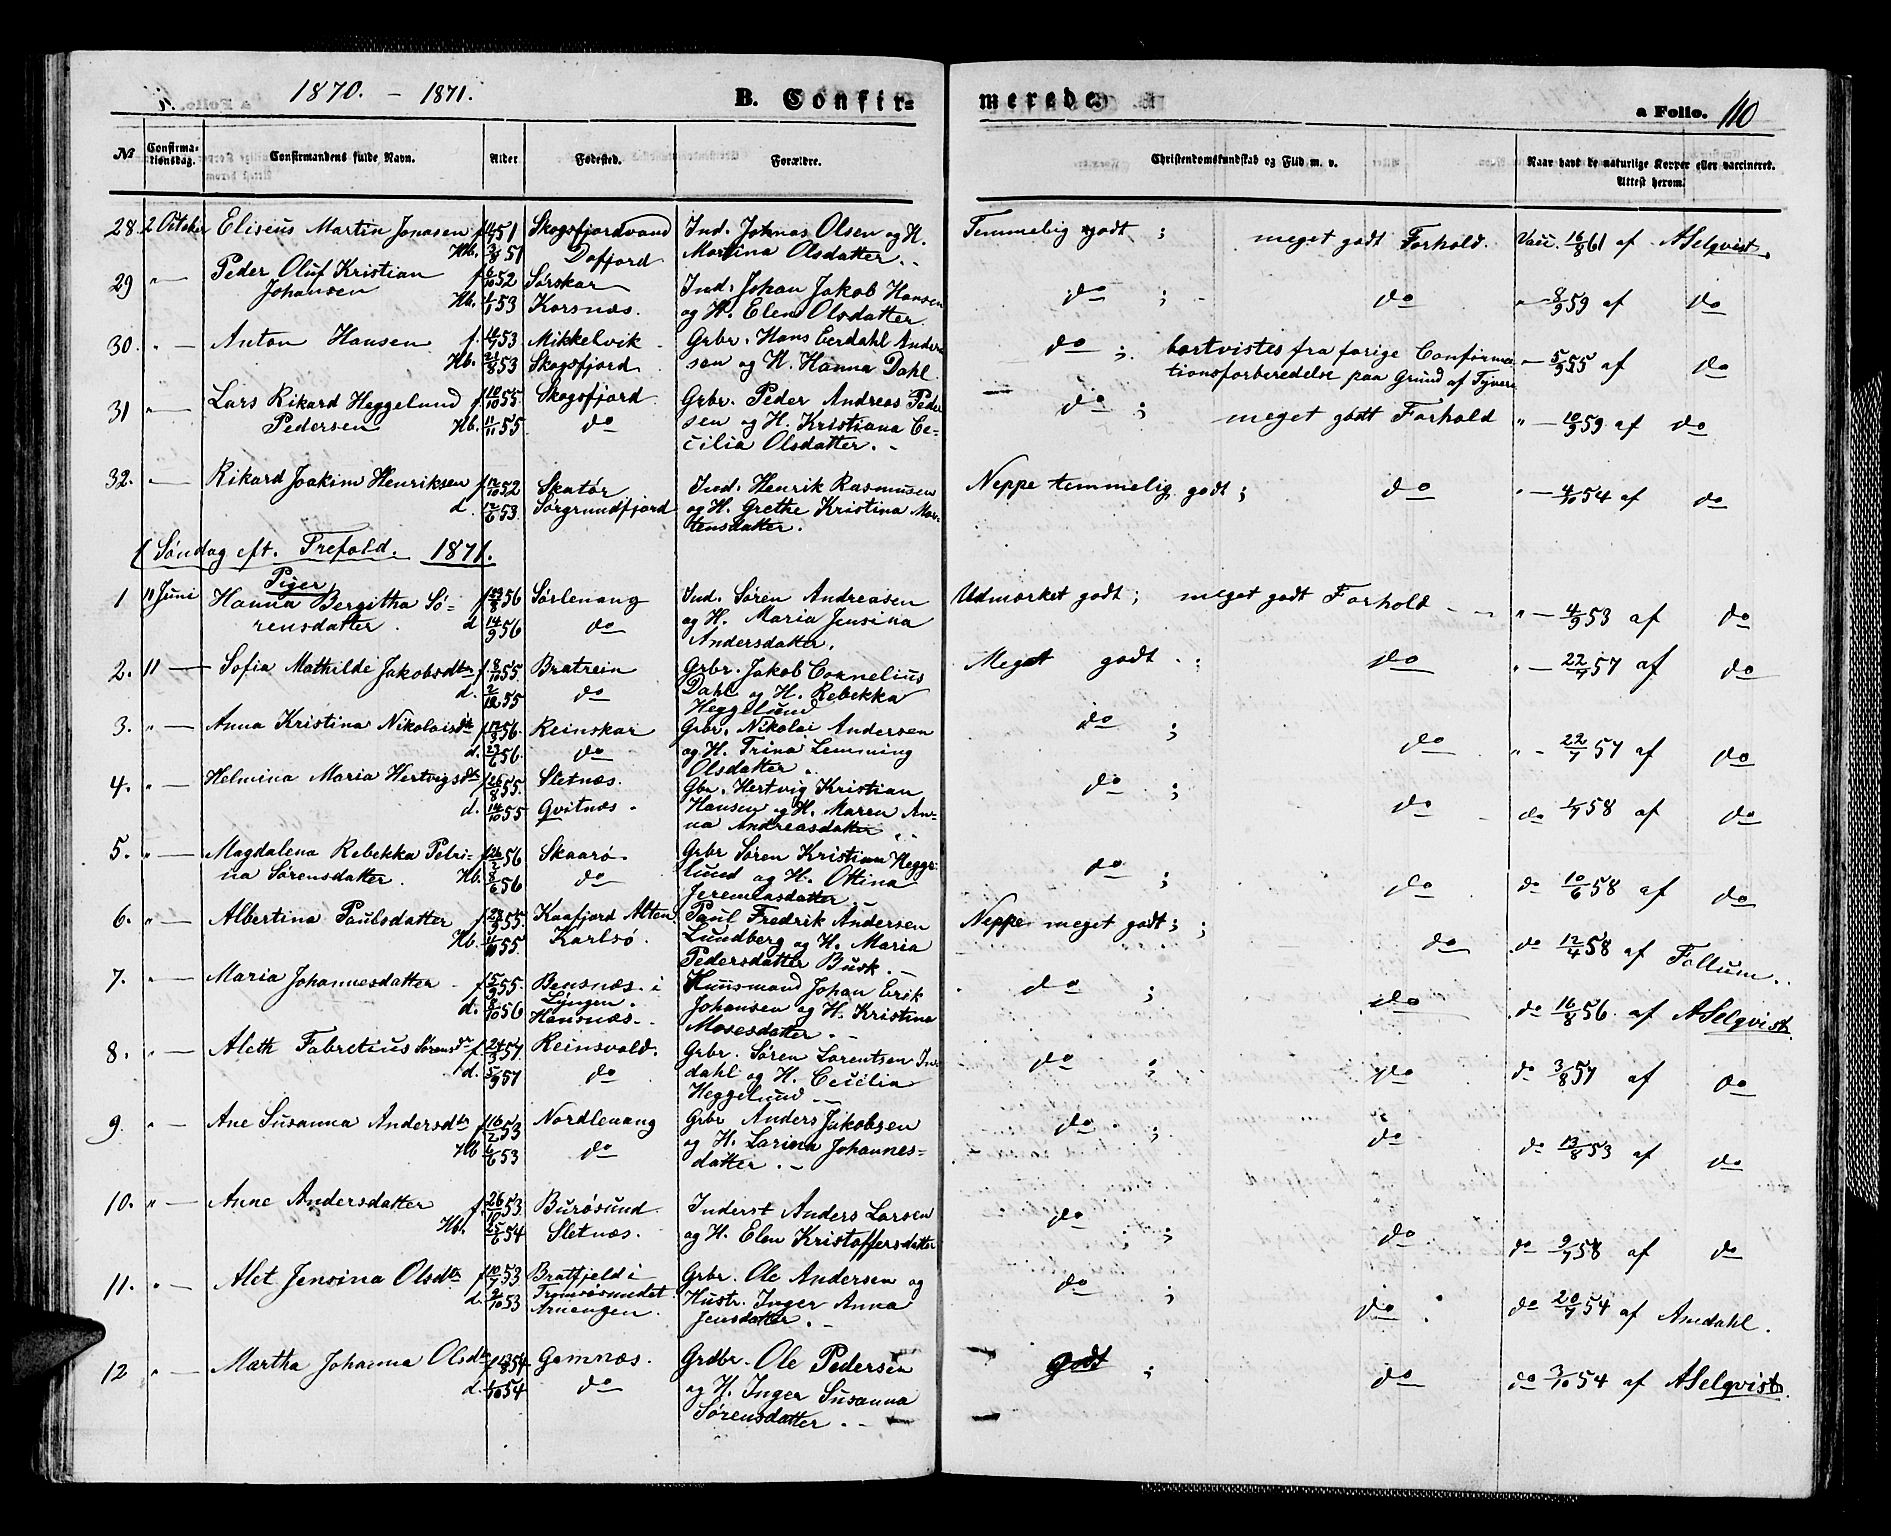 1870. - 1871.
B. Confir-
merede.
a Folio. 110
No
Confirma-
tionsdag.
Confirmandens fulde Navn.
Alder
Fødested.
Forældre.
Christendomskundskab og Flid m. v.
Naar havt de naturlige Kopper eller vaccineret.
Attest herom.
28. 2 October Eliseus Martin Jonasen f. 51 Skogsfjordvand Ind. Johnas Olsen og H. Temmelig godt ; meget godt Forhold. Vacc. 16/8 61 af ASelqvist.
Hb. 3/8 51 Dafjord Martina Olsdatter.
29 " Peder Oluf Kristian f. 6/10 52 Sørskar Ind. Johan Jakob Hansen do ; do " 8/9 59 af do
Johansen Hb. 1/1 53 Korsnæs. og H. Elen Olsdatter.
30. " Anton Hansen f. 53 Mikkelvik Grbr. Hans Eerdahl Ander- do ; bortvistes fra forige Confirma- " 5/9 55 af do
Hb. 21/8 53 Skogsfjord sen og H. Hanna Dahl. tionsforberedelse paa Grund af Tyveri
31 " Lars Rikard Heggelund f. 10/10 55 Skogsfjord Grbr. Peder Andreas Peder- do ; meget godt Forhold " 10/9 59 af do
Pedersen Hb. 11/11 55. do sen og H. Kristiana Ce-
cilia Olsdatter.
32. Rikard Joakim Henriksen f. 12/10 52 Skatør Ind. Henrik Rasmusen Neppe temmelig godt ; do " 4/10 54 af do
d. 12/6 53. Sørgrundfjord og H. Grethe Kristina Mor-
tensdatter.
1 Søndag eft. Trefold. 1871.
Piger
1 11 Juni Hanna Bergitha Sø- f 23/8 56 Sørlenang Ind. Søren Andreasen Udmærket godt ; meget godt Forhold " 4/9 53 af do
rensdatter. d 14/9 56 do og H. Maria Jensina
Andersdatter.
2. 11 Sofia Mathilde Jakobsdtr f. 8/10 55 Bratrein Grbr. Jakob Cornelius Meget godt ; do " 22/7 57 af do
d. 2/12 55 do Dahl og H. Rebekka
Heggelund
3. " Anna Kristina Nikolaisdtr f 17/3 56. Reinskar Grbr. Nikolai Andersen do ; do " 22/7 57 af do
d. 56. do og H. Trina Lemming
Olsdatter
4. " Helmina Maria Hertvigsdtr f 26/8 55. Sletnæs. Gbr. Hertvig Kristian do ; do do 58 af do
d. 14/10 55 Qvitnæs. Hansen og H. Maren An-
na Andreasdatter
5. " Magdalena Rebekka Petri- f 56 Skaarø. Grbr Søren Kristian Hegge- do ; do do 10/6 58 af do
na Sørensdatter. Hb. 8/6 56 do lund og H. Ottina
Jeremiasdatter.
6. " Albertina Paulsdatter f. 55. Kaafjord Alten. Paul Fredrik Andersen Neppe meget godt ; do do 12/4 58 af Follum.
Hb. 55. Karlsø. Lundberg og H. Maria
Pedersdatter Busk.
7. " Maria Johannesdatter f. 15/9 55. Bensnæs i Huusmand Johan Erik do ; do do 16/8 56. af ASelqvist
d. 8/10 56 Lyngen. Johansen og H. Kristina
Hansnæs. Mosesdatter
8. " Aleth Fabretius Sørensdtr f 57 Reinsvold. Grbr. Søren Lorentsen In- do ; do do 3/8 57 af do
d. 5/9 57 do dahl og H. Cecilia
Heggelund
9. " Ane Susanna Andersdtr f 16/2 53 Nordlenang Grbr Anders Jakobsen do ; do do 13/8 53 af do
Hb 6/6 53 do og H. Larina Johannes-
datter.
10. " Anne Andersdatter f. 26/10 53 Burøsund Inderst Anders Larsen do ; do do 9/7 58 af do
Hb. 25/6 54 Sletnæs. og H. Elen Kristoffersdatter
11. " Alet Jensina Olsdtr f 10/7 53 Bratfjeld i Grbr. Ole Andersen og do ; do do 20/7 54 af Amdahl.
d. 2/10 53 Tromsøsundet Hustr. Inger Anna
Arnengen. Jensdatter.
12 " Martha Johanna Olsdtr f 54 Gamnæs. Grdbr. Ole Pedersen godt ; do do 3/10 54 af ASelqvist.
d. 1/10 54 do og H. Inger Susanna
Sørensdatter.